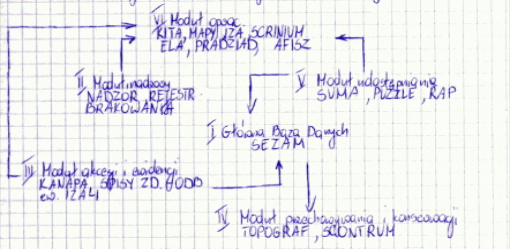 VI Moduł oprac.
KITA, MAPY, IZA, SCRINIUM
ELA, PRADZIAD, AFISZ
II Moduł nadzoru
NADZÓR, REJESTR
BRAKOWANKA
V Moduł udostępniania
SUMA, PUZZLE, RAP
I Główna Baza Danych
SEZAM
III Moduł akcesji i ewidencji
KANAPA, SPISY ZD.
ew. IZA
IV Moduł przechowywania i konserwacji
TOPOGRAF, SCONTRUM